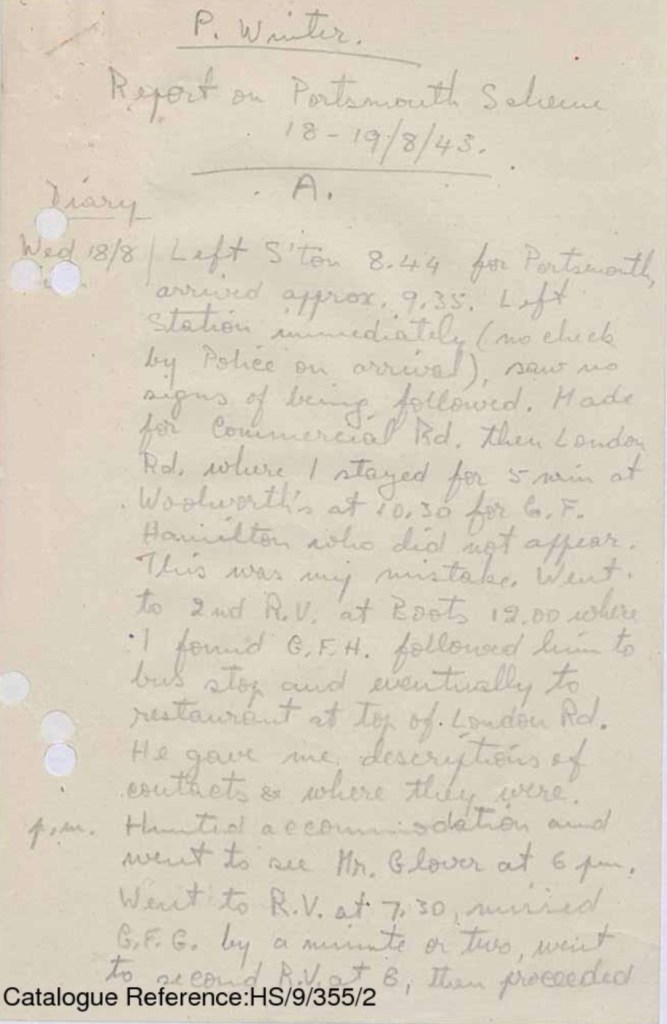 P. Winter.
Report on Portsmouth Scheme
18 - 19/8/43.
A.
Diary
Wed 18/8 Left S'ton 8.44 for Portsmouth,
arrived approx. 9.35. Left
Station immediately (no check
by Police on arrival), saw no
signs of being followed. Made
for Commercial Rd. then London
Rd. where I stayed for 5 min at
Woolworth's at 10.30 for G.F.
Hamilton who did not appear.
This was my mistake. Went
to 2nd R.V. at Boots 12.00 where
I found G.F.H. followed him to
bus stop and eventually to
restaurant at top of London Rd.
He gave me descriptions of
contacts & where they were.
p.m. Hunted accommodation and
went to see Mr. Glover at 6 pm.
Went to R.V. at 7.30, missed
G.F.G. by a minute or two, went
to second R.V. at 8, then proceeded
Catalogue Reference:HS/9/355/2